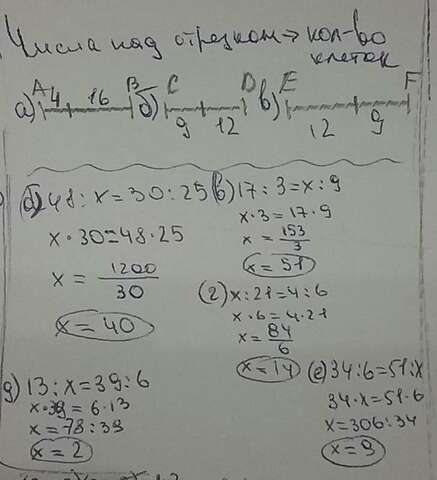 Числа над отрезком → кол-во
клеток
а) A 4 16 B б) C 9 12 D в) E 12 9 F
б) 48 : x = 30 : 25
x · 30 = 48 · 25
x = 1200/30
x = 40
в) 17 : 3 = x : 9
x · 3 = 17 · 9
x = 153/3
x = 51
г) x : 21 = 4 : 6
x · 6 = 4 · 21
x = 84/6
x = 14
д) 13 : x = 39 : 6
x · 39 = 6 · 13
x = 78 : 39
x = 2
е) 34 : 6 = 51 : x
34 · x = 51 · 6
x = 306 : 34
x = 9